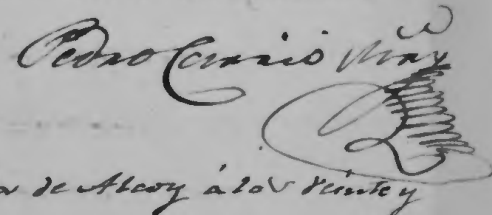 Pedro Carrió
de Alcoy á los veinte y